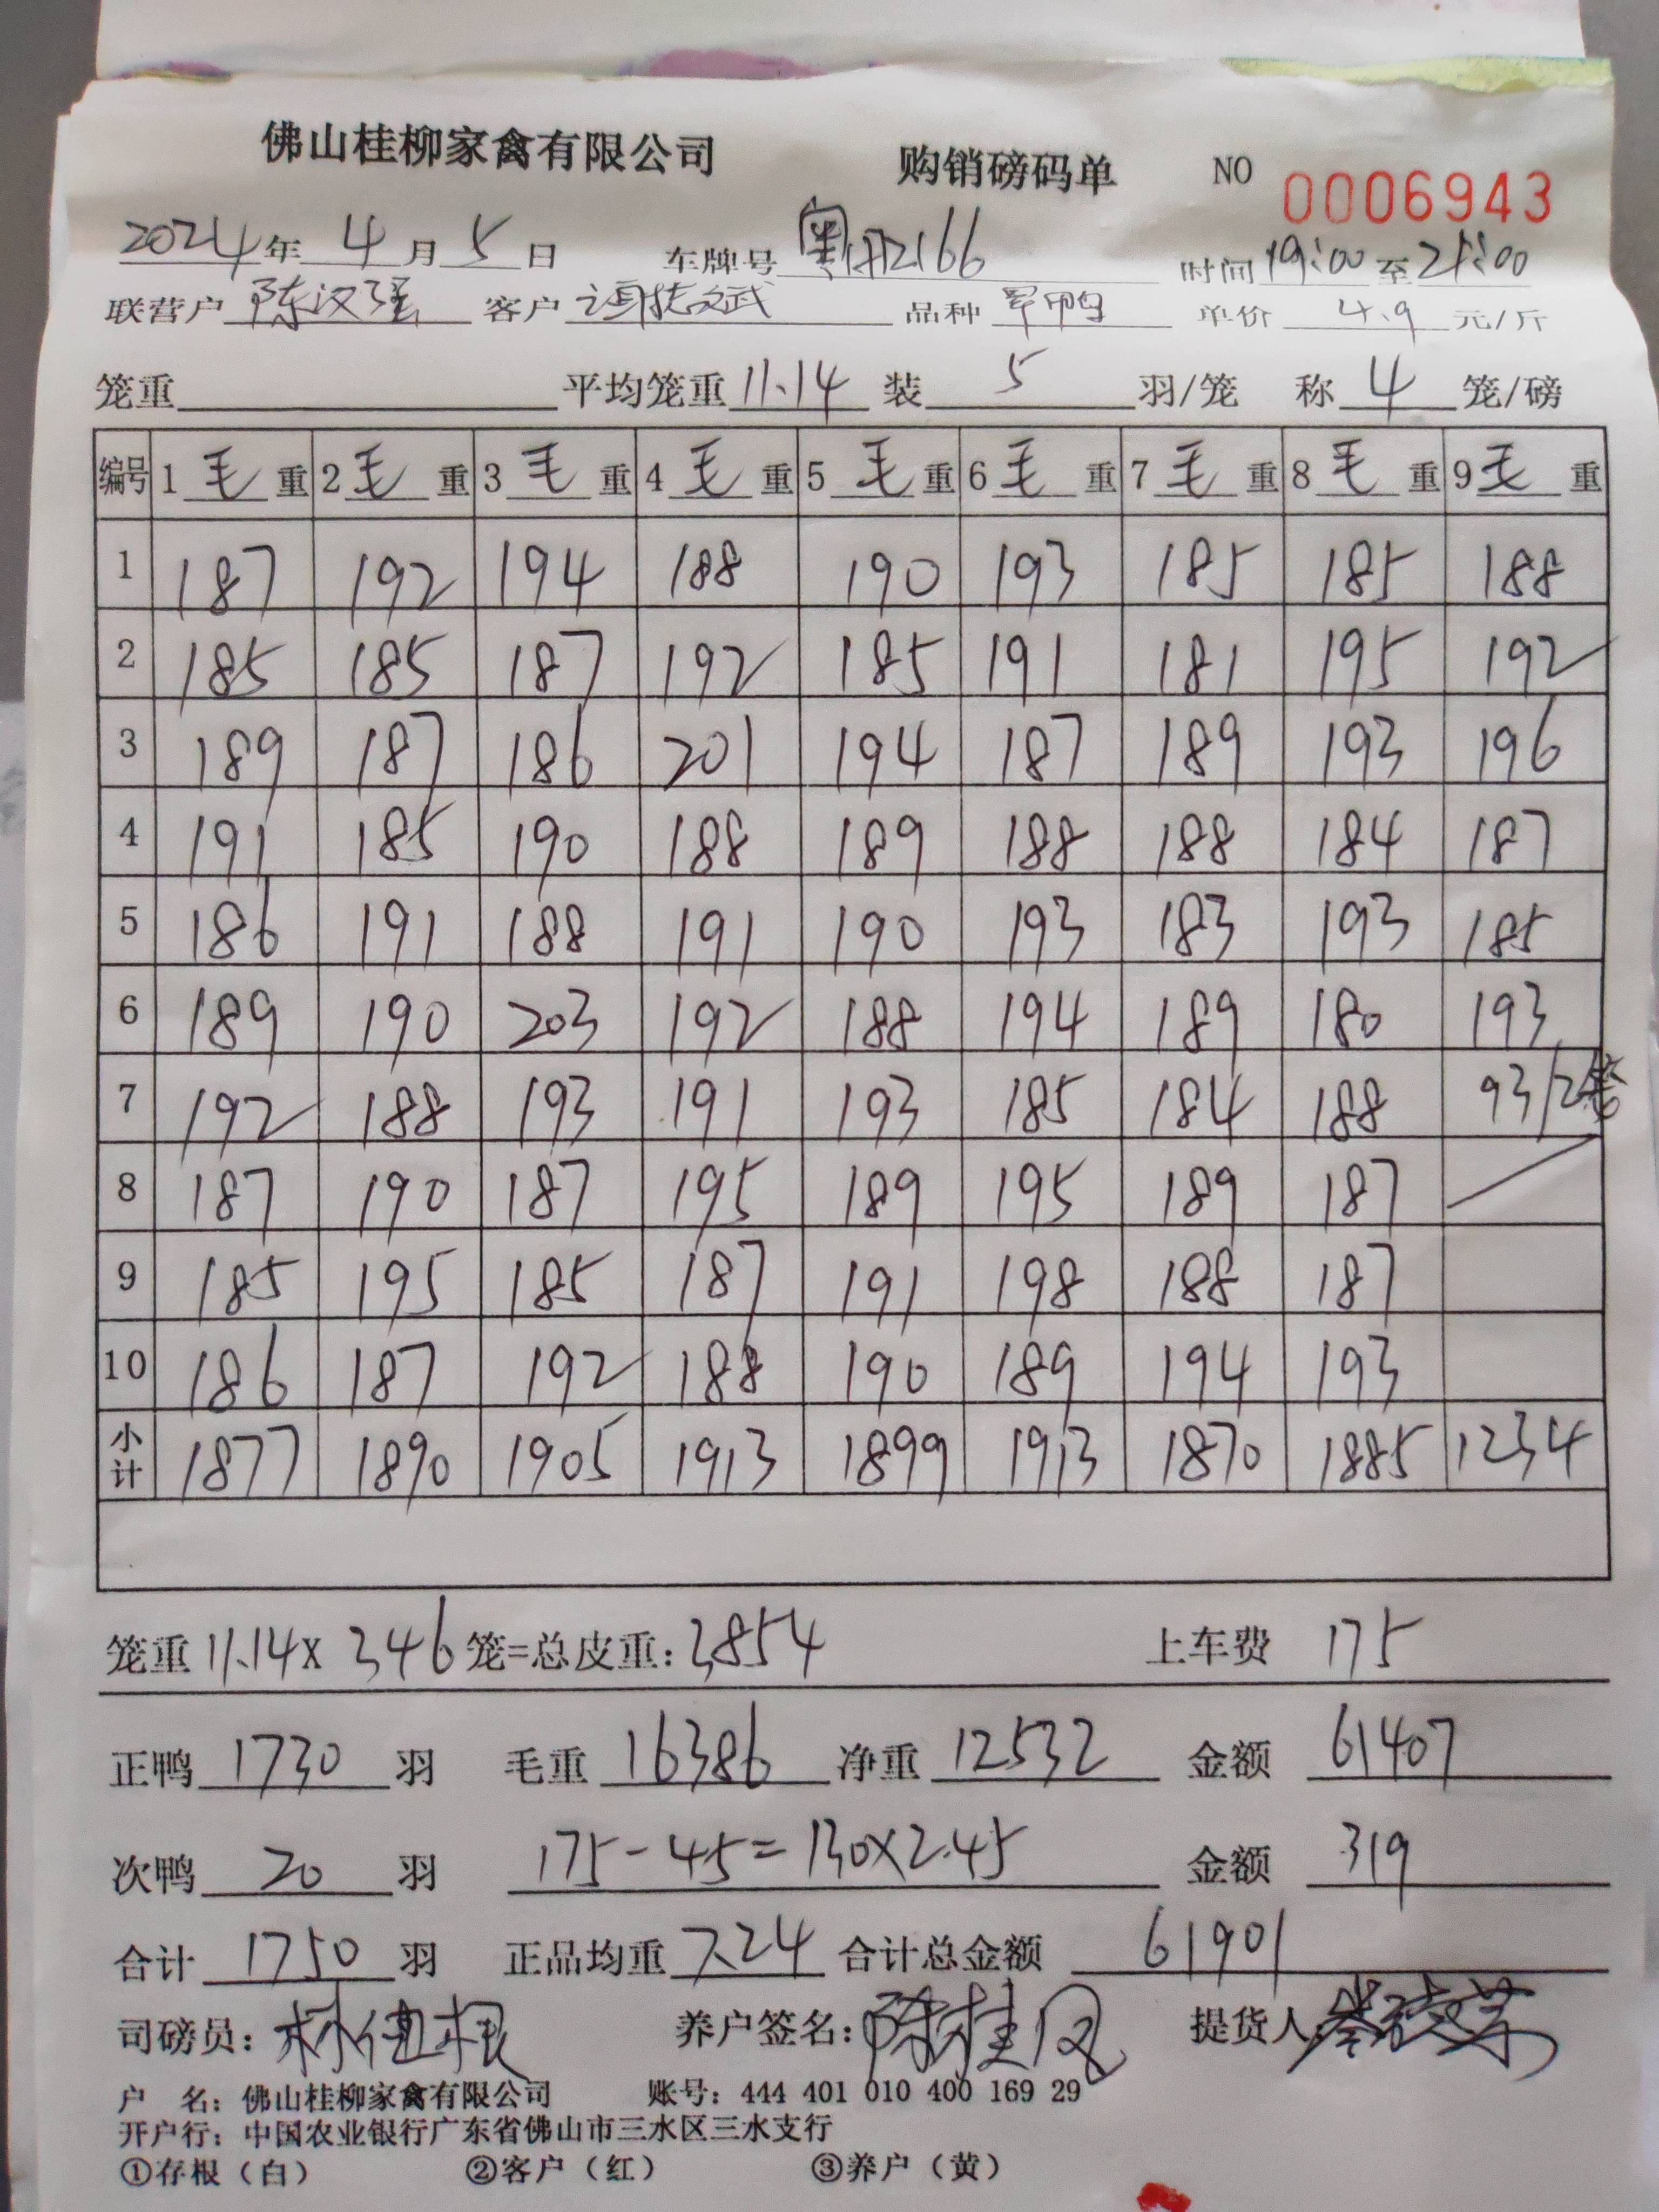 佛山桂柳家禽有限公司 购销磅码单 NO 0006943
2024年 4月 5日 车牌号 粤 2166 时间 19:00 至 21:00
联营户 陈汉强 客户 品种 单价 4.9 元/斤
笼重 平均笼重 11.14 装 5 羽/笼 称 4 笼/磅
编号 1 毛 重 2 毛 重 3 毛 重 4 毛 重 5 毛 重 6 毛 重 7 毛 重 8 毛 重 9 毛 重
1 187 192 194 188 190 193 185 185 188
2 185 185 187 192 185 191 181 195 192
3 189 187 186 201 194 187 189 193 196
4 191 185 190 188 189 188 188 184 187
5 186 191 188 191 190 193 183 193 185
6 189 190 203 192 188 194 189 180 193
7 192 188 193 191 193 185 184 188 93/2笼
8 187 190 187 195 189 195 189 187
9 185 195 185 187 191 198 188 187
10 186 187 192 188 190 189 194 193
小计 1877 1890 1905 1913 1899 1913 1870 1885 1234
笼重 11.14 x 346 笼=总皮重: 3854 上车费 175
正鸭 1730 羽 毛重 16386 净重 12532 金额 61407
次鸭 20 羽 175-45=130×2.45 金额 319
合计 1750 羽 正品均重 7.24 合计总金额 61901
司磅员: 林伍根 养户签名: 陈桂凤 提货人:
户 名: 佛山桂柳家禽有限公司 账号: 444 401 010 400 169 29
开户行: 中国农业银行广东省佛山市三水区三水支行
①存根（白） ②客户（红） ③养户（黄）